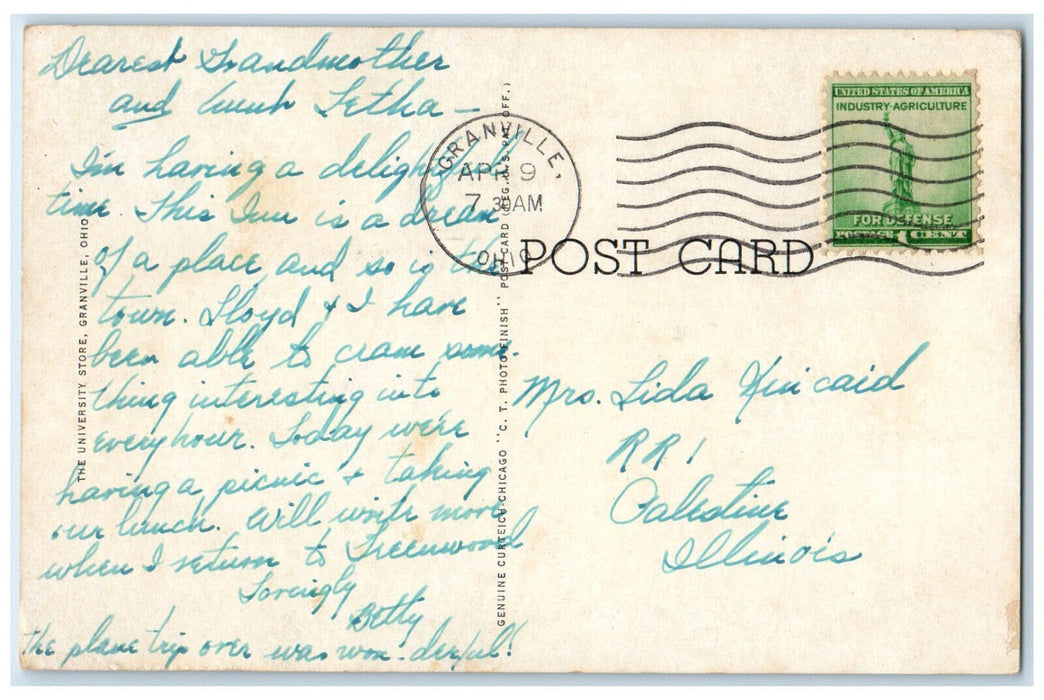 Dearest Grandmother
and Aunt Letha —
I'm having a delightful
time. This Inn is a dream
of a place and so is the
town. Lloyd & I have
been able to cram some-
thing interesting into
every hour. Today we're
having a picnic & taking
our lunch. Will write more
when I return to Greenwood
Lovingly
Betty
The plane trip over was won-derful!
THE UNIVERSITY STORE, GRANVILLE, OHIO
GENUINE CURTEICH-CHICAGO "C. T. PHOTO-FINISH" POST CARD (REG. U. S. PAT. OFF.)
GRANVILLE,
APR 9
7 30AM
OHIO
UNITED STATES OF AMERICA
INDUSTRY-AGRICULTURE
FOR DEFENSE
POSTAGE 1 CENT
POST CARD
Mrs. Lida Kincaid
RR 1
Palestine
Illinois